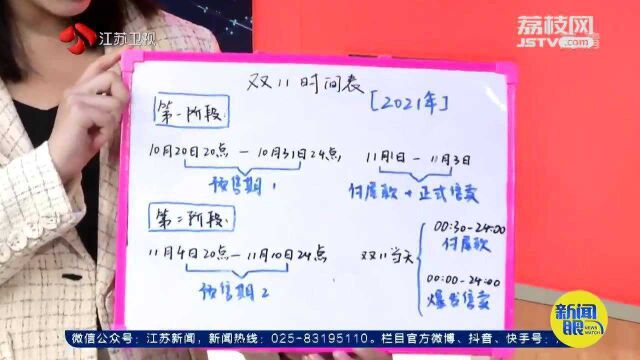 江苏卫视
荔枝网
JSTV.com
双11时间表
[2021年]
第一阶段:
10月20日20点 — 10月31日24点
预售期1
11月1日 — 11月3日
付尾款 + 正式售卖
第二阶段:
11月4日20点 — 11月10日24点
预售期2
双11当天
00:30-24:00
付尾款
00:00-24:00
爆发售卖
新闻眼
NEWS WATCH
微信公众号:江苏新闻,新闻热线:025-83195110。栏目官方微博、抖音、快手号: